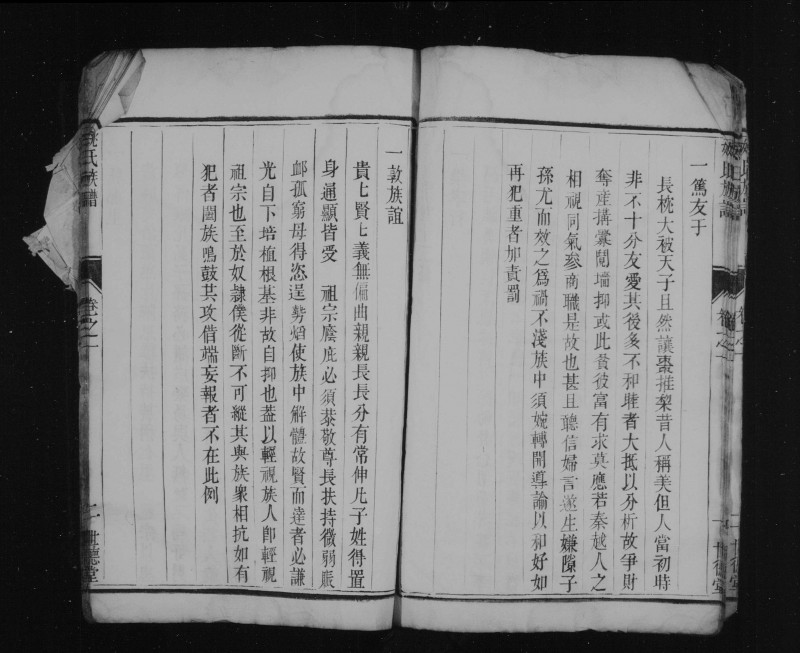 一篤友于
長枕大被天子且然讓棗推棃昔人稱美但人當初時
非不十分友愛其後多不和睢者大抵以分析故爭財
奪產搆釁鬩墻抑或此貧彼富有求莫應若秦越人之
相視同氣參商職是故也甚且聽信婦言遂生嫌隙子
孫尤而效之爲禍不淺族中須婉轉開導論以和好如
再犯重者加責罰
一敦族誼
貴七賢七義無偏曲親親長長分有常伸凡子姓得置
身通顯皆受 祖宗廕庇必須恭敬尊長扶持微弱賑
卹孤窮毋得恣逞勢熖使族中解體故賢而達者必謙
光自下培植根基非故自抑也葢以輕視族人卽輕視
祖宗也至於奴隷僕從斷不可縱其與族衆相抗如有
犯者闔族鳴鼓共攻借端妄報者不在此例
氏族譜
卷之一
二
世德堂